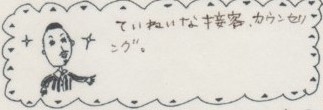 ていねいな接客、カウンセリ
ング。